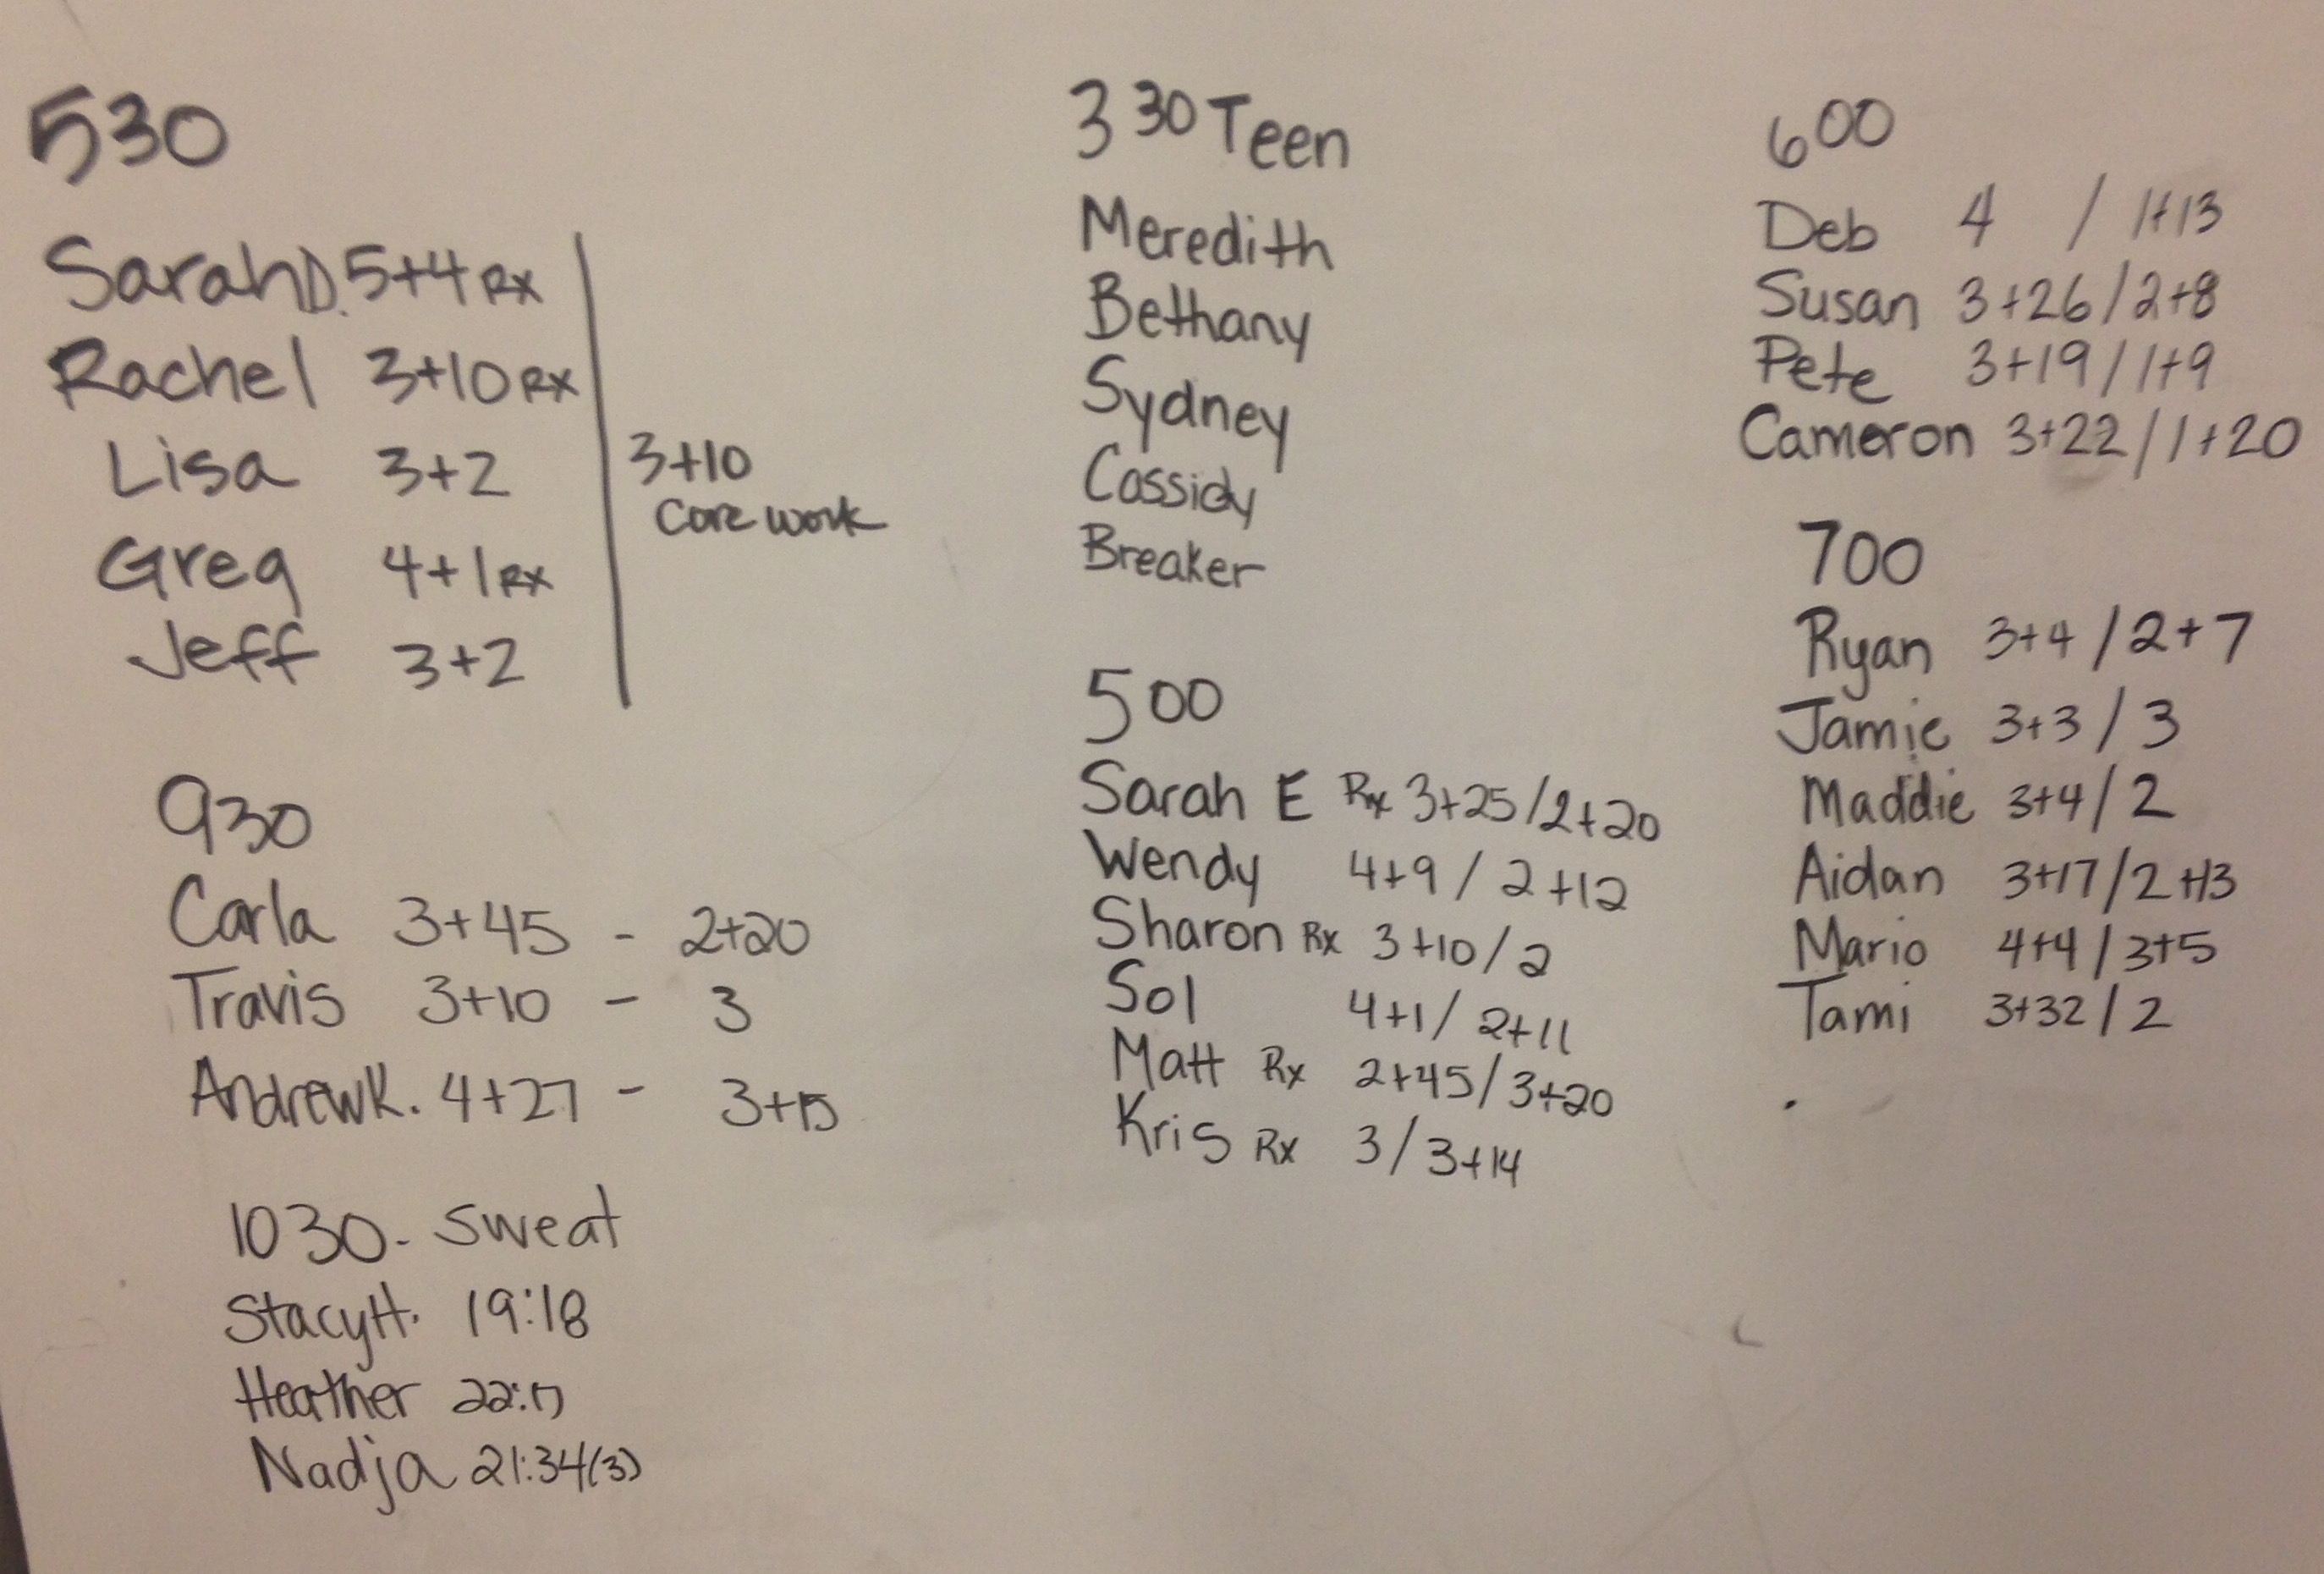 530
Sarah D. 5+4 Rx
Rachel 3+10 Rx
Lisa 3+2
Greg 4+1 Rx
Jeff 3+2
3+10
Core work
930
Carla 3+45 - 2+20
Travis 3+10 - 3
Andrew K. 4+27 - 3+15
1030 - Sweat
Stacy H. 19:18
Heather 22:17
Nadja 21:34 (3)
330 Teen
Meredith
Bethany
Sydney
Cassidy
Breaker
500
Sarah E Rx 3+25/2+20
Wendy 4+9 / 2+12
Sharon Rx 3+10/2
Sol 4+1/ 2+11
Matt Rx 2+45/3+20
Kris Rx 3/3+14
600
Deb 4 / 1+13
Susan 3+26/2+8
Pete 3+19/1+9
Cameron 3+22/1+20
700
Ryan 3+4/2+7
Jamie 3+3/3
Maddie 3+4/2
Aidan 3+17/2+13
Mario 4+4/3+5
Tami 3+32/2